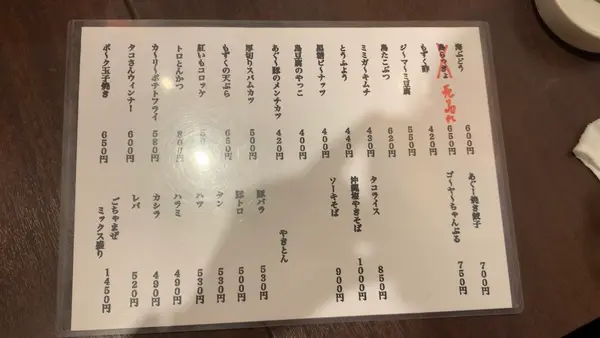 海ぶどう 600円
島らっきょ 650円
売切れ
もずく酢 420円
ジーマーミ豆腐 550円
島たこぶつ 620円
ミミガーキムチ 430円
とうふよう 440円
黒糖ピーナッツ 400円
島豆腐のやっこ 400円
あぐー豚のメンチカツ 420円
厚切りスパムカツ 500円
もずくの天ぷら 650円
紅いもコロッケ
トロとんかつ 800円
カーリーポテトフライ 580円
タコさんウィンナー 600円
ポーク玉子焼き 650円
あぐー焼き餃子 700円
ゴーヤーちゃんぷる 750円
タコライス 850円
沖縄やきそば 1000円
ソーキそば 900円
やきとん
豚バラ 530円
豚トロ 500円
タン 530円
ハツ 530円
ハラミ 490円
カシラ 490円
レバ 520円
ごちゃまぜ
ミックス盛り 1450円